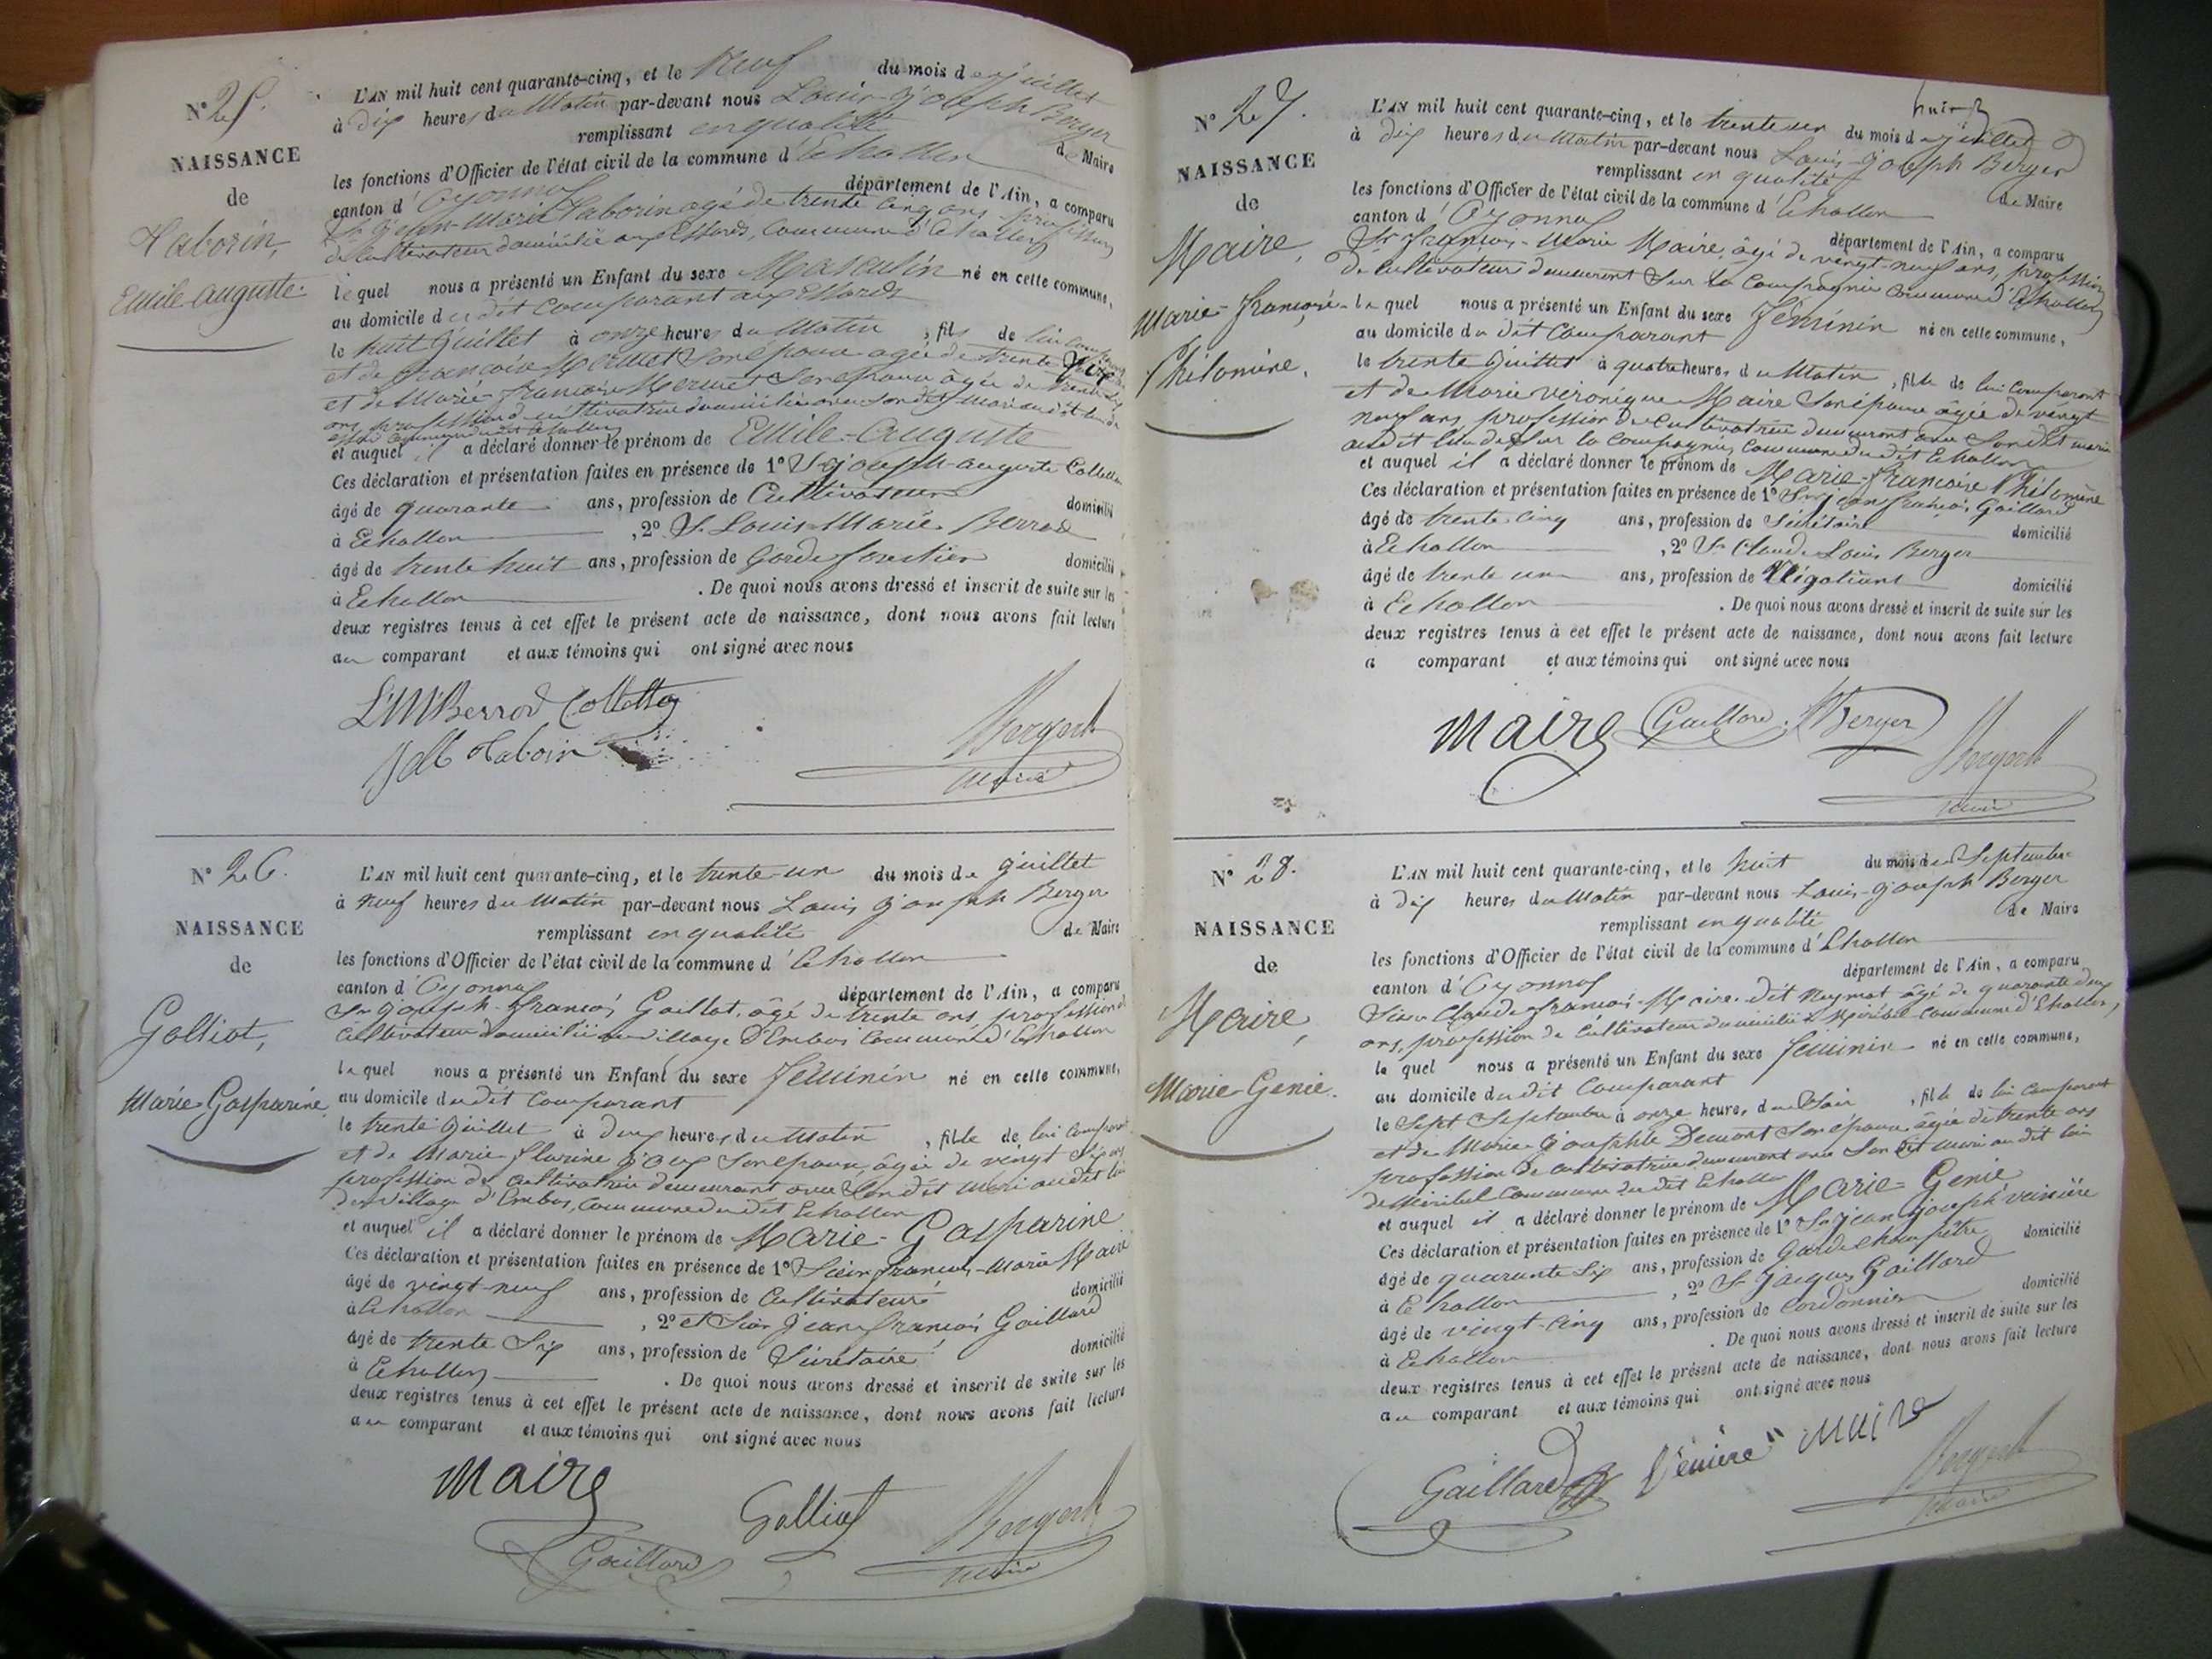 N° 25.
NAISSANCE
de
Taborin,
Emile Auguste
L'AN mil huit cent quarante-cinq, et le Neuf du mois de juillet
à dix heures du Matin par-devant nous Louis-joseph Berger
remplissant en qualité de Maire
les fonctions d'Officier de l'état civil de la commune d'Echallon
canton d'Oyonnax département de l'Ain, a comparu
Sr joseph-Marie Taborin agé de trente cinq ans profession
de cultivateur domicilié aux Essards, commune d'Echallon
lequel nous a présenté un Enfant du sexe Masculin né en cette commune,
au domicile du dit comparant aux Essards
le huit juillet à onze heures du Matin, fils de lui comparant
et de françoise Mermet son épouse agée de trente six
et de Marie françoise Mermet Son épouse âgée de trente six
ans profession de cultivatrice domiciliée avec son dit mari au dit lieu des
essards commune du dit Echallon
et auquel il a déclaré donner le prénom de Emile-Auguste
Ces déclaration et présentation faites en présence de 1° Sr joseph-auguste Collet
âgé de quarante ans, profession de Cultivateur domicilié
à Echallon, 2° Sr Louis Marie Berrod
âgé de trente huit ans, profession de Garde forestier domicilié
à Echallon. De quoi nous avons dressé et inscrit de suite sur les
deux registres tenus à cet effet le présent acte de naissance, dont nous avons fait lecture
au comparant et aux témoins qui ont signé avec nous
L M Berrod Collet
J M Taborin
Berger
Maire
N° 26.
NAISSANCE
de
Galliot,
Marie Gasparine
L'AN mil huit cent quarante-cinq, et le trente-un du mois de juillet
à neuf heures du Matin par-devant nous Louis joseph Berger
remplissant en qualité de Maire
les fonctions d'Officier de l'état civil de la commune d'Echallon
canton d'Oyonnax département de l'Ain, a comparu
Sr joseph-françois Galliot, âgé de trente ans profession de
cultivateur domicilié au village d'Embois commune d'Echallon
lequel nous a présenté un Enfant du sexe féminin né en cette commune,
au domicile du dit comparant
le trente juillet à deux heures du Matin, fille de lui comparant
et de Marie florine joux son épouse, âgée de vingt six ans
profession de cultivatrice demeurant avec Son dit mari au dit lieu
du village d'Embois, commune du dit Echallon
et auquel il a déclaré donner le prénom de Marie-Gasparine
Ces déclaration et présentation faites en présence de 1° Sieur françois-Marie Maire
âgé de vingt-neuf ans, profession de Cultivateur domicilié
à Echallon, 2° et Sieur jean françois Gaillard
âgé de trente Six ans, profession de Sécrétaire domicilié
à Echallon. De quoi nous avons dressé et inscrit de suite sur les
deux registres tenus à cet effet le présent acte de naissance, dont nous avons fait lecture
au comparant et aux témoins qui ont signé avec nous
Maire
Gaillard Galliot Berger
Maire
N° 27.
NAISSANCE
de
Maire,
Marie-françoise
Philomine.
L'AN mil huit cent quarante-cinq, et le trente un du mois de juillet
à dix heures du Matin par-devant nous Louis-joseph Berger
remplissant en qualité de Maire
les fonctions d'Officier de l'état civil de la commune d'Echallon
canton d'Oyonnax département de l'Ain, a comparu
Sr françois-Marie Maire, âgé de vingt-neuf ans, profession
de cultivateur demeurant Sur la Compagnie commune d'Echallon
lequel nous a présenté un Enfant du sexe féminin né en cette commune,
au domicile du dit comparant
le trente juillet à quatre heures du Matin, fille de lui comparant
et de Marie véronique Maire Son épouse âgée de vingt
neuf ans, profession de cultivatrice demeurant avec Son dit mari
au dit lieu de Sur la Compagnie, commune du dit Echallon
et auquel il a déclaré donner le prénom de Marie-françoise Philomène
Ces déclaration et présentation faites en présence de 1° Sr jean françois Gaillard
âgé de trente-cinq ans, profession de Sécrétaire domicilié
à Echallon, 2° Sr Claude Louis Berger
âgé de trente un ans, profession de Négotiant domicilié
à Echallon. De quoi nous avons dressé et inscrit de suite sur les
deux registres tenus à cet effet le présent acte de naissance, dont nous avons fait lecture
a comparant et aux témoins qui ont signé avec nous
Maire Gaillard Berger
Berger
Maire
N° 28.
NAISSANCE
de
Maire,
Marie-Genie.
L'AN mil huit cent quarante-cinq, et le huit du mois de Septembre
à dix heures du Matin par-devant nous Louis-joseph Berger
remplissant en qualité de Maire
les fonctions d'Officier de l'état civil de la commune d'Echallon
canton d'Oyonnax département de l'Ain, a comparu
Sieur Claude françois Maire dit Neymat âgé de quarante deux
ans, profession de Cultivateur domicilié à Miribel commune d'Echallon
lequel nous a présenté un Enfant du sexe féminin né en cette commune,
au domicile du dit comparant
le Sept Septembre à onze heures du Soir, fille de lui comparant
et de Marie-josephte Demont Son épouse âgée de trente ans
profession de cultivatrice demeurant avec Son dit mari au dit lieu
de Miribel commune du dit Echallon
et auquel il a déclaré donner le prénom de Marie-Genie
Ces déclaration et présentation faites en présence de 1° Sr jean joseph vainière
âgé de quarante Six ans, profession de Garde Champêtre domicilié
à Echallon, 2° Sr jacques Gaillard
âgé de vingt-cinq ans, profession de cordonnier domicilié
à Echallon. De quoi nous avons dressé et inscrit de suite sur les
deux registres tenus à cet effet le présent acte de naissance, dont nous avons fait lecture
au comparant et aux témoins qui ont signé avec nous
Gaillard Venière Maire
Berger
Maire